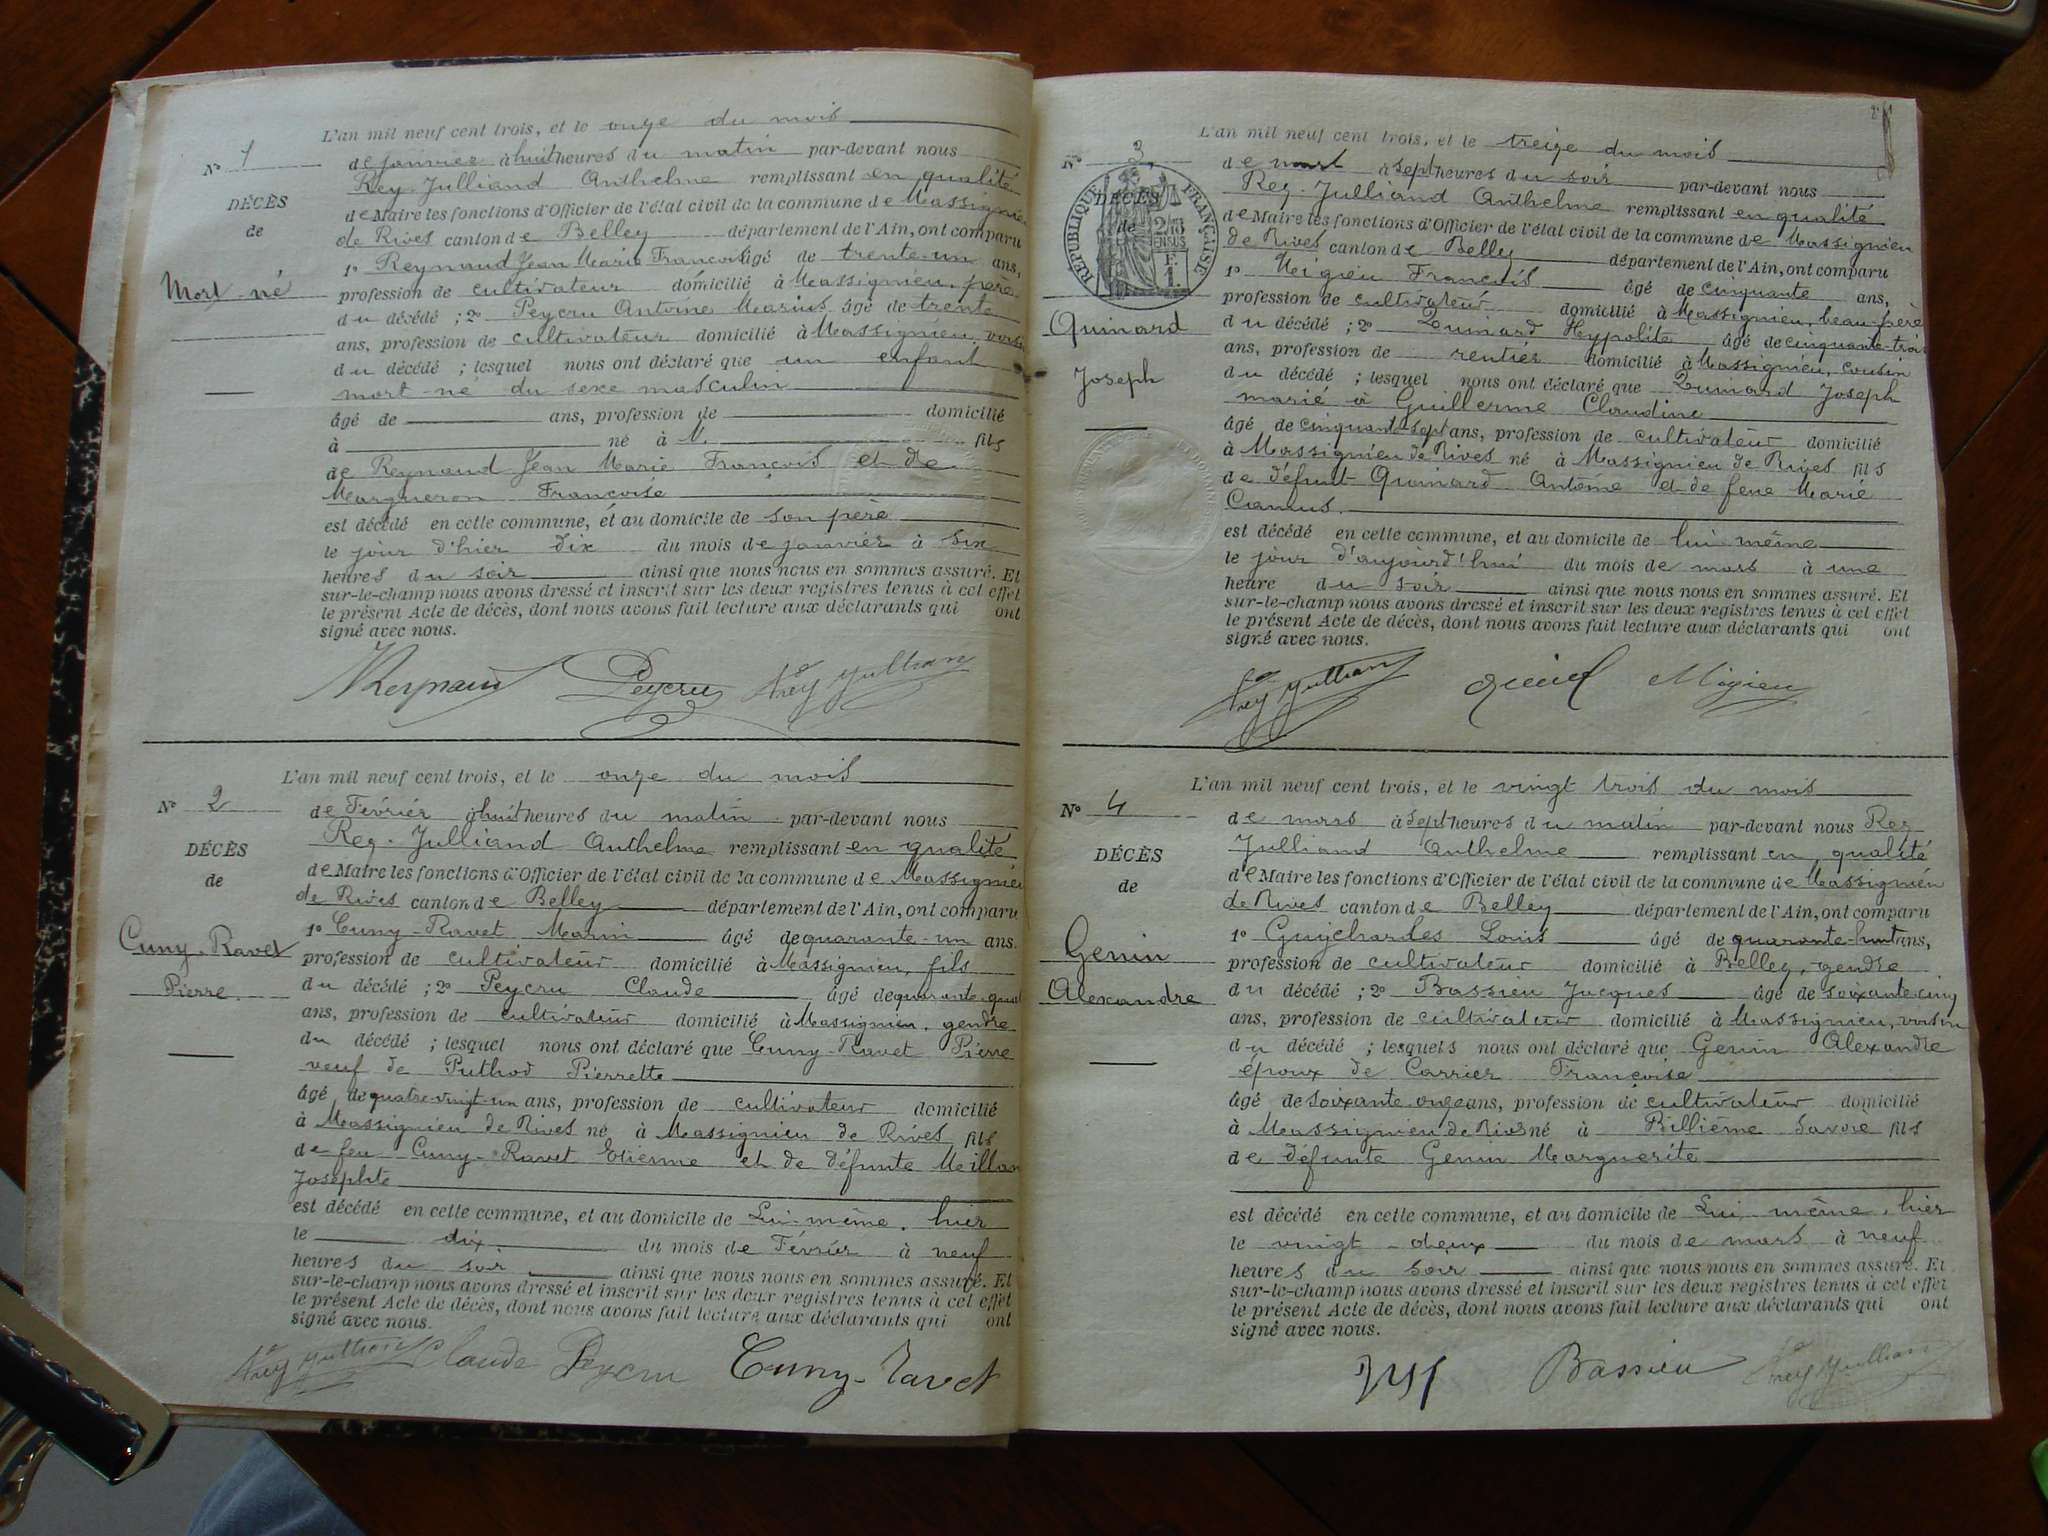 L'an mil neuf cent trois, et le onze du mois
N° 1
de janvier à huit heures du matin par-devant nous
Rey-Julliand Anthelme remplissant en qualité
DÉCÈS
de Maire les fonctions d'Officier de l'état civil de la commune de Massignieu
de
de Rives canton de Belley département de l'Ain, ont comparu
1° Reynaud Jean Marie François âgé de trente-un ans,
Mort-né
profession de cultivateur domicilié à Massignieu, père
du décédé ; 2° Peycru Antoine Marius âgé de trente
ans, profession de cultivateur domicilié à Massignieu, voisin
du décédé ; lesquel nous ont déclaré que un enfant
mort-né du sexe masculin
âgé de ans, profession de domicilié
à né à fils
de Reynaud Jean Marie François et de
Margueron Françoise
est décédé en cette commune, et au domicile de son père
le jour d'hier dix du mois de janvier à six
heures du soir ainsi que nous nous en sommes assuré. Et
sur-le-champ nous avons dressé et inscrit sur les deux registres tenus à cet effet
le présent Acte de décès, dont nous avons fait lecture aux déclarants qui ont
signé avec nous.
Reynaud Peycru Rey Jullian
L'an mil neuf cent trois, et le onze du mois
N° 2
de Février à huit heures du matin par-devant nous
Rey-Julliand Anthelme remplissant en qualité
DÉCÈS
de Maire les fonctions d'Officier de l'état civil de la commune de Massignieu
de
de Rives canton de Belley département de l'Ain, ont comparu
1° Cuny-Ravet Marin âgé de quarante-un ans.
Cuny-Ravet
profession de cultivateur domicilié à Massignieu, fils
Pierre
du décédé ; 2° Peycru Claude âgé de quarante-quat
ans, profession de cultivateur domicilié à Massignieu, gendre
du décédé ; lesquel nous ont déclaré que Cuny-Ravet Pierre
veuf de Puthod Pierrette
âgé de quatre-vingt-un ans, profession de cultivateur domicilié
à Massignieu de Rives né à Massignieu de Rives fils
de feu Cuny-Ravet Etienne et de défunte Meillan
Josephte
est décédé en cette commune, et au domicile de Lui-même, hier
le dix du mois de Février à neuf
heures du soir ainsi que nous nous en sommes assuré. Et
sur-le-champ nous avons dressé et inscrit sur les deux registres tenus à cet effet
le présent Acte de décès, dont nous avons fait lecture aux déclarants qui ont
signé avec nous.
Rey Jullian Claude Peycru Cuny-Ravet
L'an mil neuf cent trois, et le treize du mois
N° 3
de mars à sept heures du soir par-devant nous
Rey-Julliand Anthelme remplissant en qualité
RÉPUBLIQUE FRANÇAISE
DÉCÈS
de Maire les fonctions d'Officier de l'état civil de la commune de Massignieu
de
de Rives canton de Belley département de l'Ain, ont comparu
1° Migieu François âgé de cinquante ans,
profession de cultivateur domicilié à Massignieu, beau-père
Quinard
du décédé ; 2° Quinard Hypolite âgé de cinquante-trois
ans, profession de rentier domicilié à Massignieu, cousin
Joseph
du décédé ; lesquel nous ont déclaré que Quinard Joseph
marié à Guillerme Claudine
âgé de cinquant-sept ans, profession de cultivateur domicilié
à Massignieu de Rives né à Massignieu de Rives fils
de défunt Quinard Antoine et de feue Marie
Camus
est décédé en cette commune, et au domicile de lui même
le jour d'aujourd'hui du mois de mars à une
heure du soir ainsi que nous nous en sommes assuré. Et
sur-le-champ nous avons dressé et inscrit sur les deux registres tenus à cet effet
le présent Acte de décès, dont nous avons fait lecture aux déclarants qui ont
signé avec nous.
Rey Jullian Migieu
L'an mil neuf cent trois, et le vingt trois du mois
N° 4
de mars à sept heures du matin par-devant nous Rey
Julliand Anthelme remplissant en qualité
DÉCÈS
de Maire les fonctions d'Officier de l'état civil de la commune de Massignieu
de
de Rives canton de Belley département de l'Ain, ont comparu
1° Louis âgé de quarante-huit ans,
Genin
profession de cultivateur domicilié à Belley, gendre
Alexandre
du décédé ; 2° Bassieu Jacques âgé de soixante cinq
ans, profession de cultivateur domicilié à Massignieu, voisin
du décédé ; lesquels nous ont déclaré que Genin Alexandre
époux de Carrier Françoise
âgé de soixante onze ans, profession de cultivateur domicilié
à Massignieu de Rives né à Billième Savoie fils
de défunte Genin Marguerite
est décédé en cette commune, et au domicile de Lui même, hier
le vingt-deux du mois de mars à neuf
heures du soir ainsi que nous nous en sommes assuré. Et
sur-le-champ nous avons dressé et inscrit sur les deux registres tenus à cet effet
le présent Acte de décès, dont nous avons fait lecture aux déclarants qui ont
signé avec nous.
Bassieu Rey Jullian